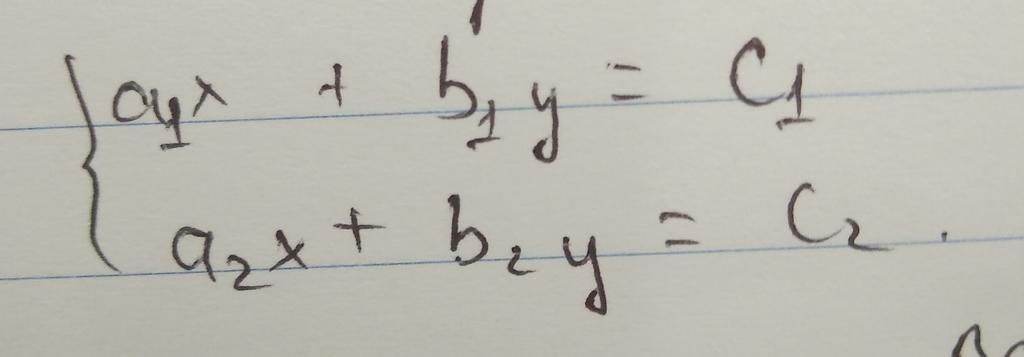 a₁x + b₁y = c₁
a₂x + b₂y = c₂.